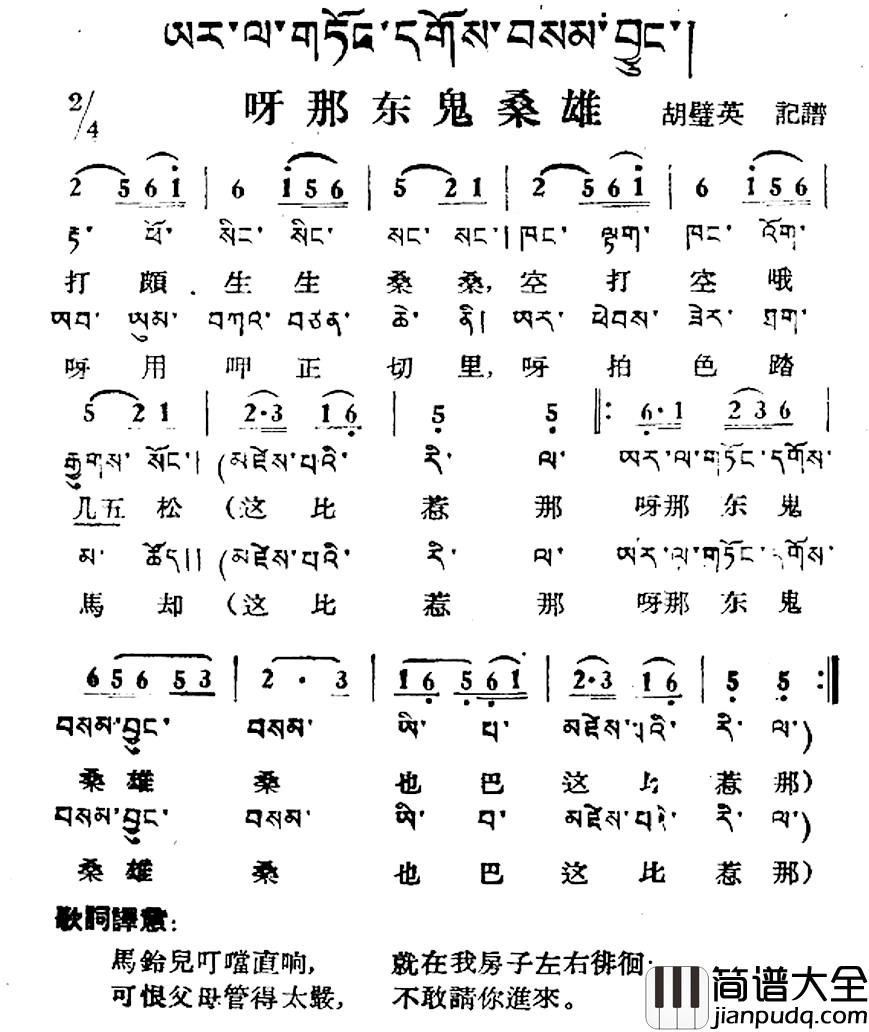 ཨར་ལ་གཏོང་དགོས་བསམ་བྱུང་།
2/4 呀那东鬼桑雄 胡璧英 記譜
2 5 6 1 | 6 1 5 6 | 5 2 1 | 2 5 6 1 | 6 1 5 6 |
རྟ་ ཕོ་ སིང་ སིང་ སང་ སང་། ཁང་ ལྟག་ ཁང་ འོག་
打頗生生桑桑,空打空哦
ཨབ་ ཡུམ་ བཀའ་ བཙན་ ཆེ་ ནི། ཨར་ ཕེབས་ ཟེར་ ཀྲག་
呀用呷正切里,呀拍色踏
5 2 1 | 2·3 1 6 | 5 5 ‖: 6·1 2 3 6 |
རྒྱུགས་ སོང་། (མཛེས་པའི་ རི་ ལ་ ཨར་ལ་གཏོང་དགོས་
几五松(这比惹那 呀那东鬼
མ་ ཚོད།། (མཛེས་པའི་ རི་ ལ་ ཨར་ལ་གཏོང་དགོས་
馬却(这比惹那 呀那东鬼
6 5 6 5 3 | 2 · 3 | 1 6 5 6 1 | 2·3 1 6 | 5 5 :‖
བསམ་བྱུང་ བསམ་ ཨི་ པ་ མཛེས་པའི་ རི་ ལ་)
桑雄桑也巴这比惹那)
བསམ་བྱུང་ བསམ་ ཨི་ པ་ མཛེས་པའི་ རི་ ལ་)
桑雄桑也巴这比惹那)
歌詞譯意:
馬鈴兒叮噹直响, 就在我房子左右徘徊;
可恨父母管得太嚴, 不敢請你進來。
简谱大全
jianpudq.com